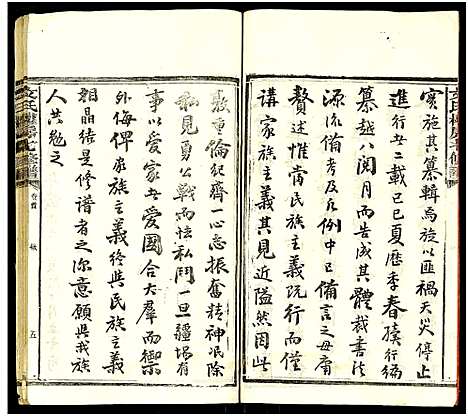 實施其纂輯焉旋以匪禍天災停止
進行廿二載己巳夏歷季春賡行編
纂越八閱月而告成其體裁書法
源流備考凡例中已備言之毋庸
贅述惟嘗民族主義既行而僅
講家族主義其見近隘然因此
敦重倫紀齊一心志振奮精神泯除
私見勇公戰而怯私鬥一旦疆場有
事以愛家者愛國合大羣而禦
外侮俾家族主義終與民族主義
相晶結是修譜者之深意願與我族
人共勉之
文氏 房七修譜
卷首
五